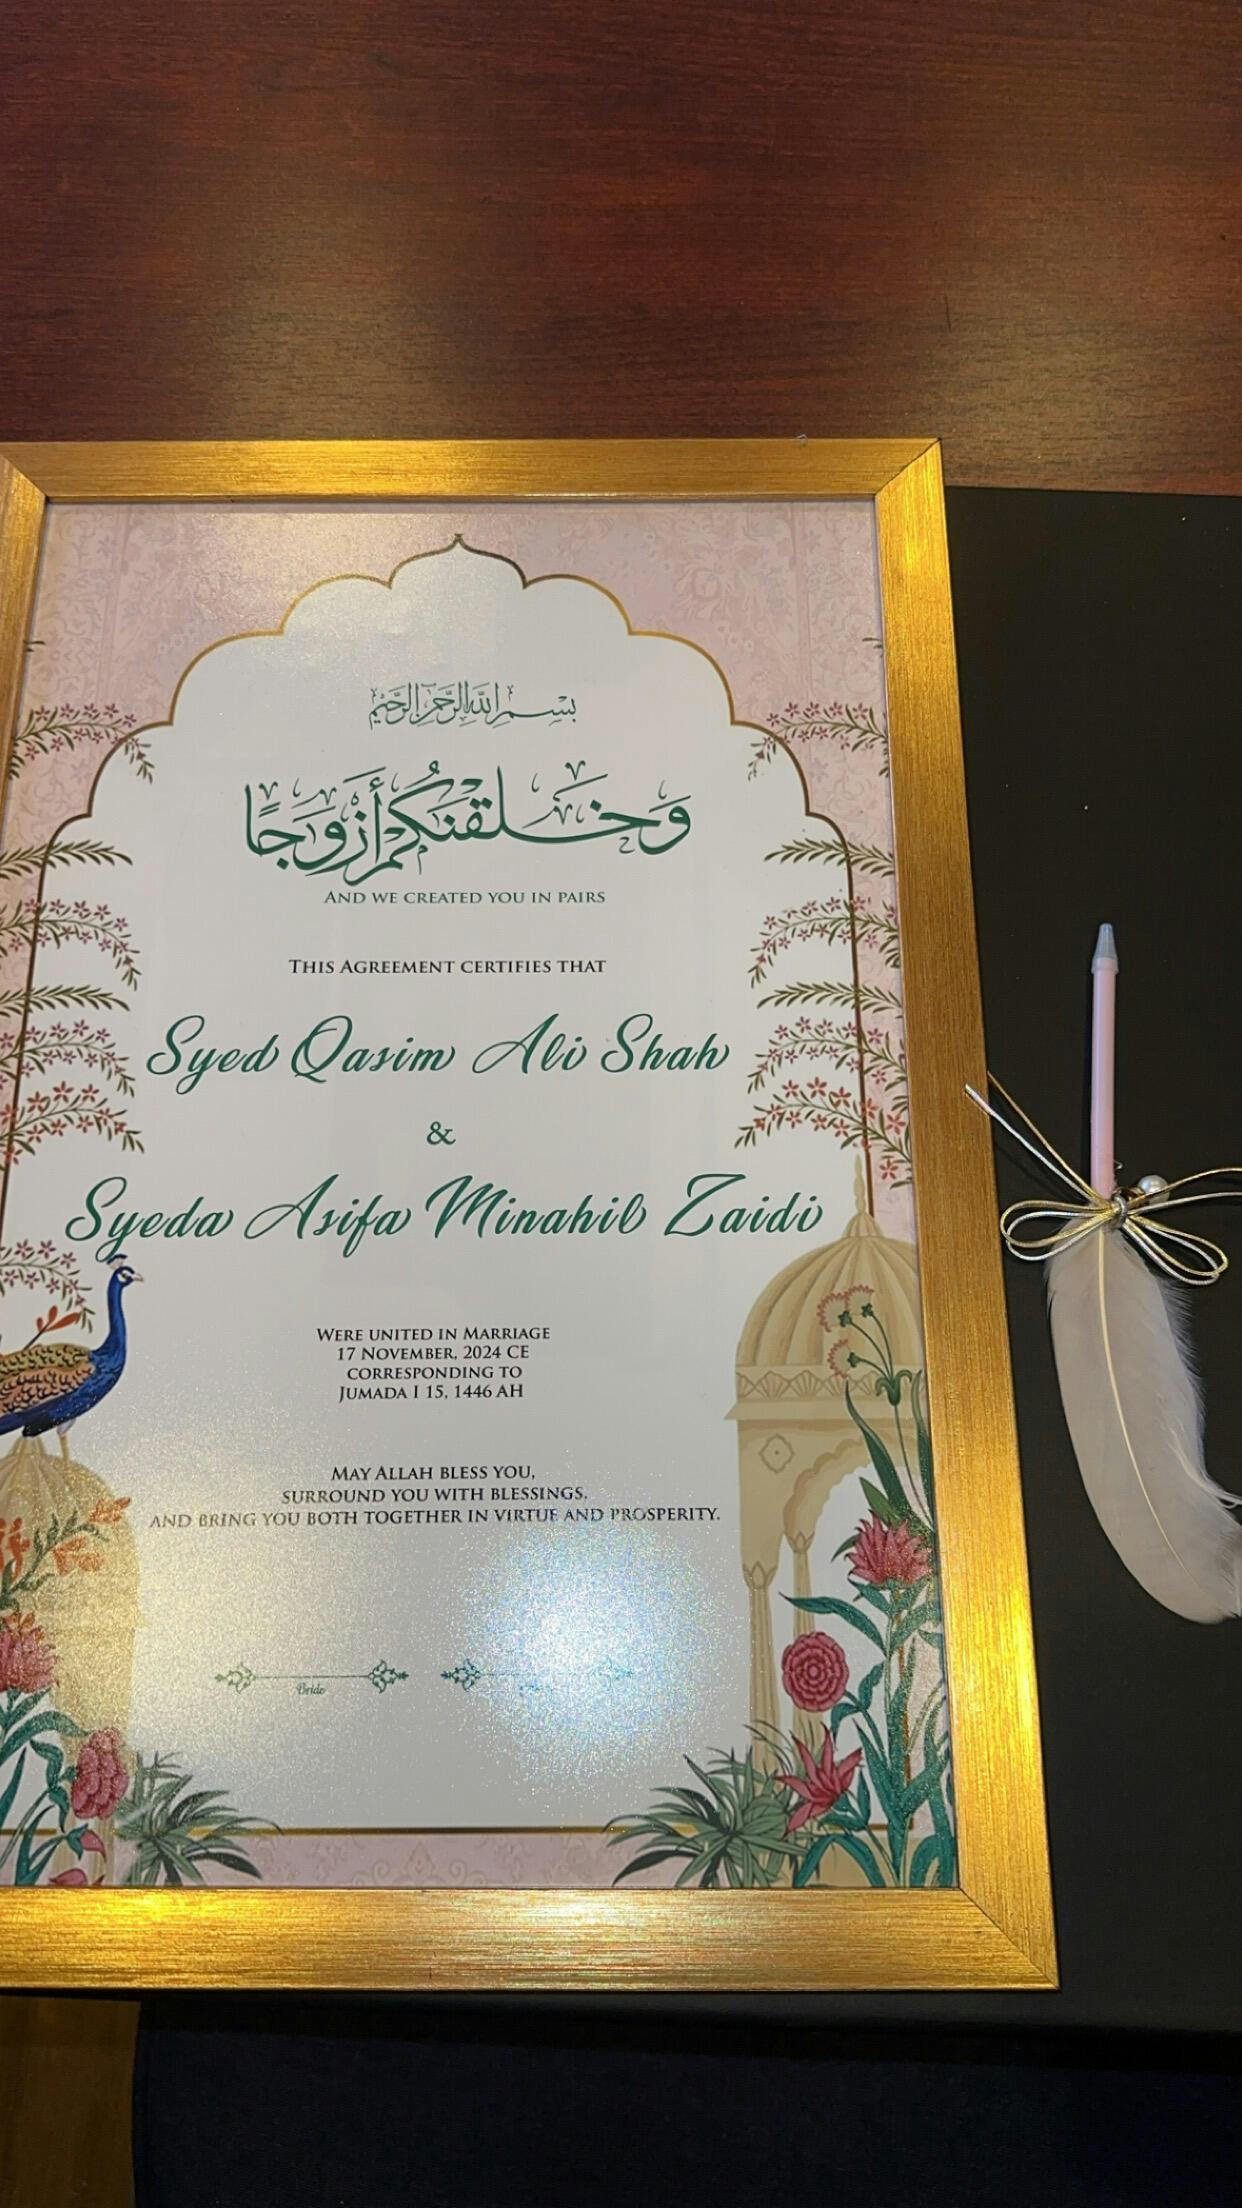 بسم الله الرحمن الرحيم
وَخَلَقْنَٰكُمْ أَزْوَٰجًا
AND WE CREATED YOU IN PAIRS
THIS AGREEMENT CERTIFIES THAT
Syed Qasim Ali Shah
&
Syeda Asifa Minahil Zaidi
WERE UNITED IN MARRIAGE
17 NOVEMBER, 2024 CE
CORRESPONDING TO
JUMADA I 15, 1446 AH
MAY ALLAH BLESS YOU,
SURROUND YOU WITH BLESSINGS,
AND BRING YOU BOTH TOGETHER IN VIRTUE AND PROSPERITY.
Bride